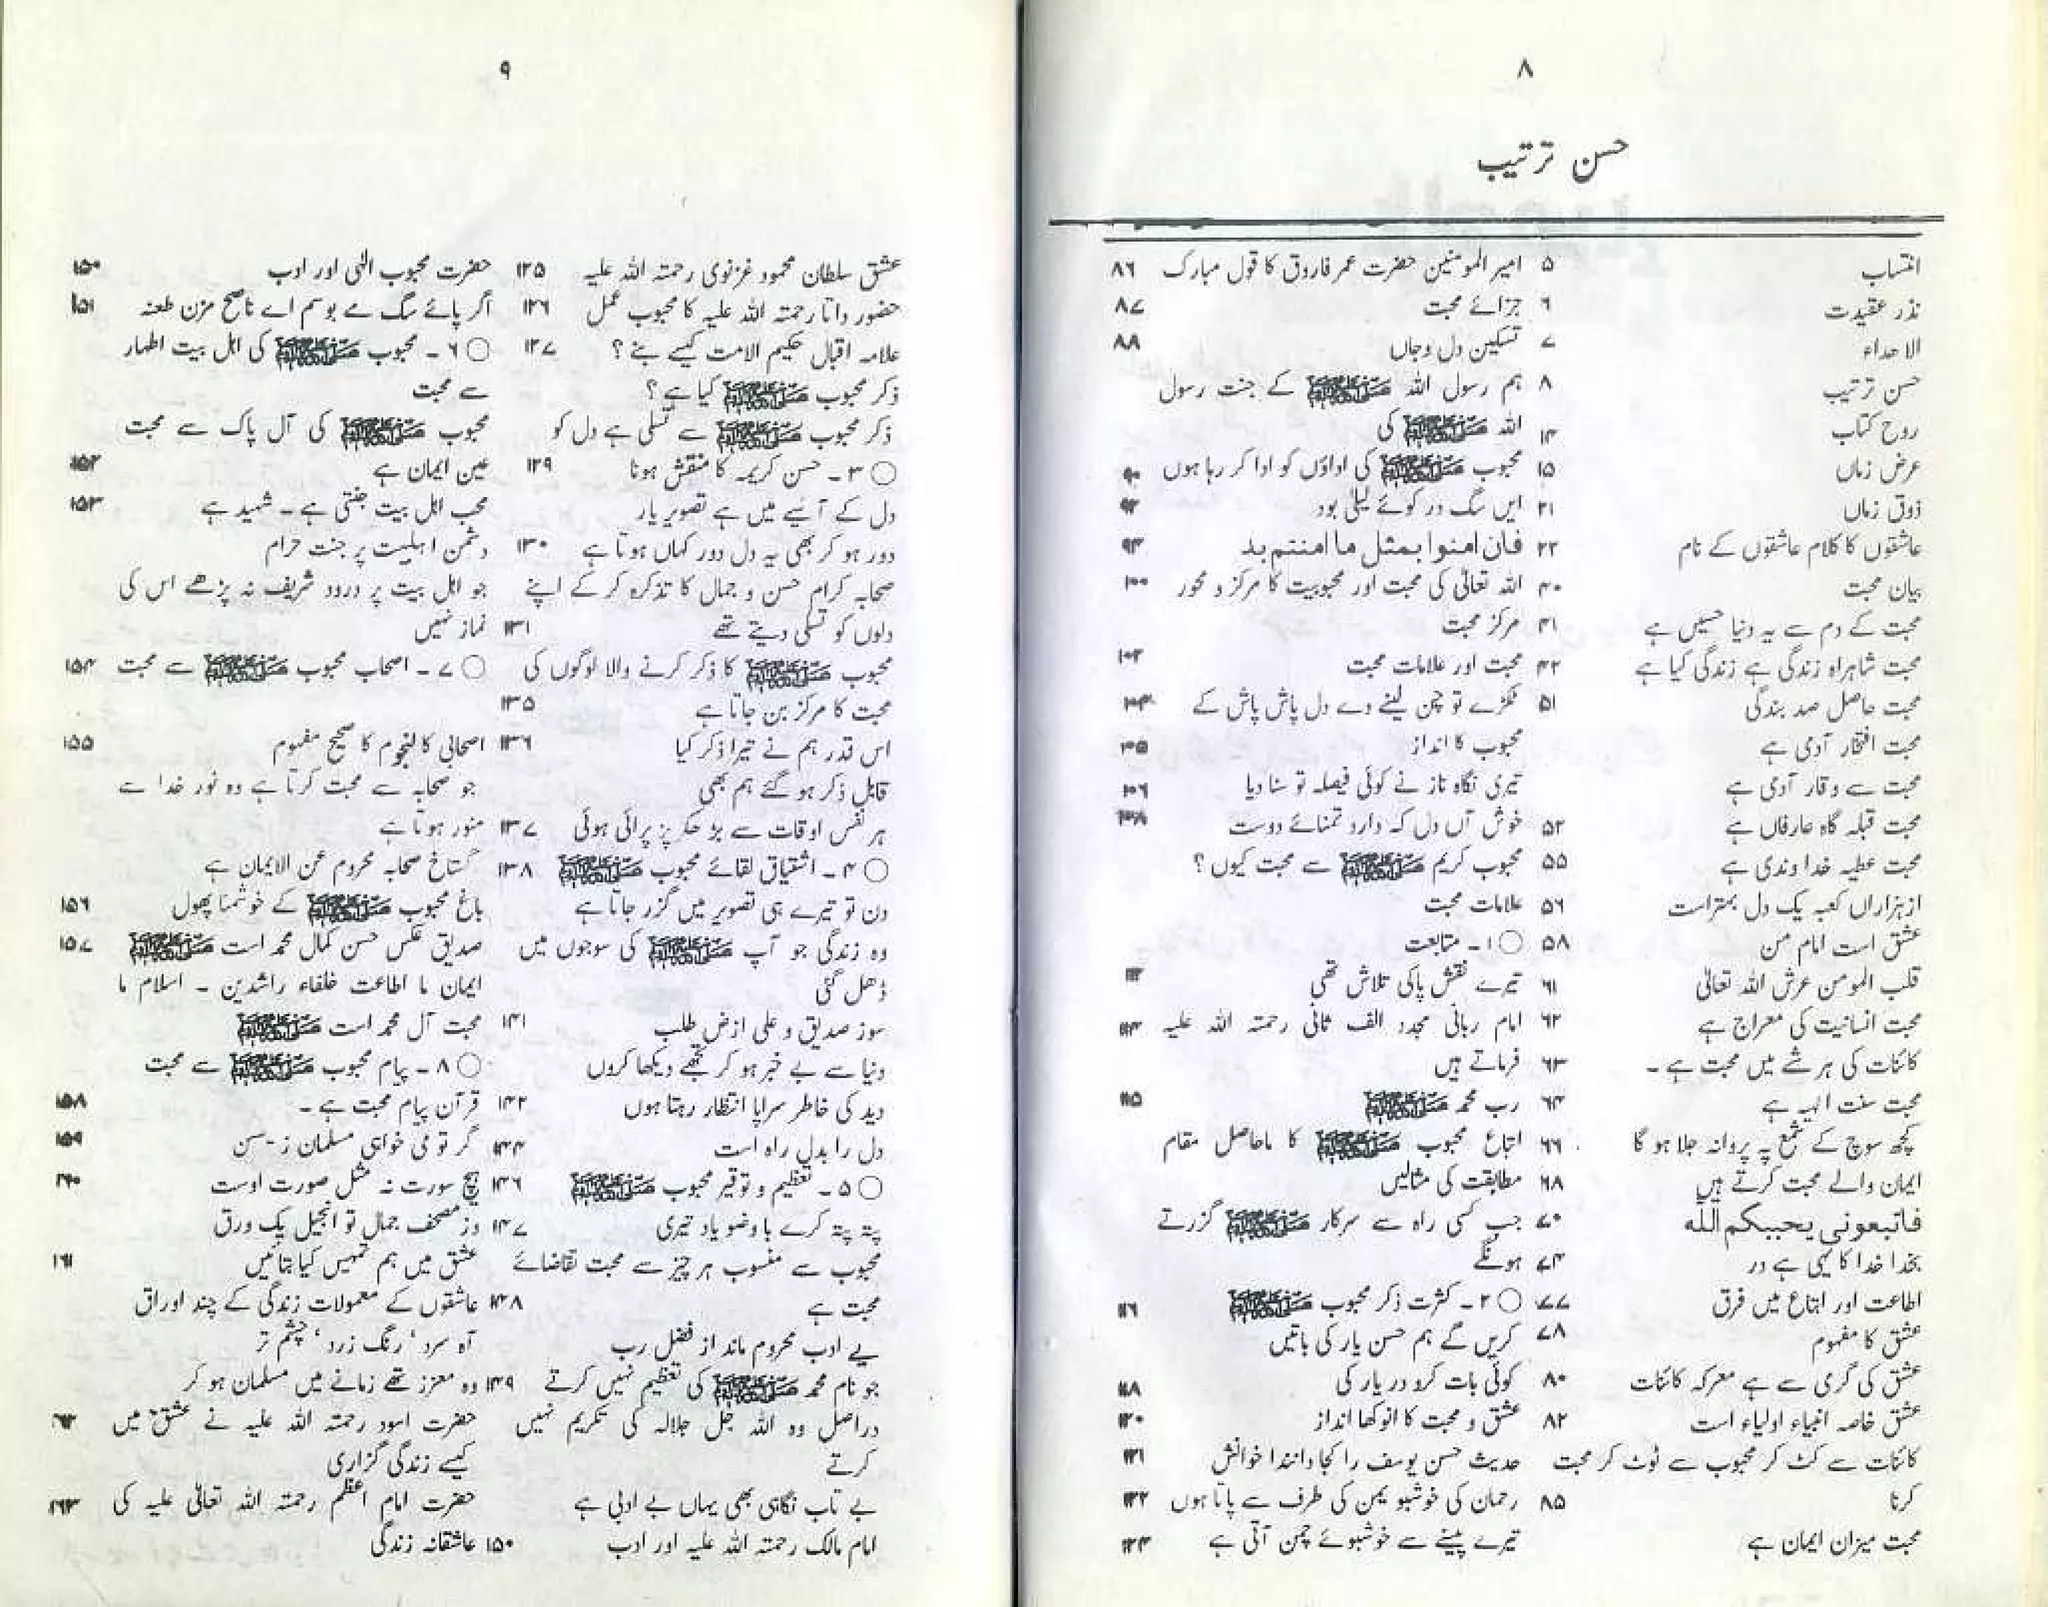 ۸
حسن ترتیب
انتساب ۵
نذر عقیدت ۶
الاھداء ۷
حسن ترتیب ۸
روح کتاب ۱۴
عرض زماں ۱۵
ذوق زماں ۲۱
عاشقوں کا کلام عاشقوں کے نام ۲۲
بیان محبت ۴۰
محبت کے دم سے یہ دنیا حسیں ہے ۴۱
محبت شاہراہ زندگی ہے زندگی کیا ہے ۴۲
محبت حاصل صد بندگی ۵۱
محبت افتخار آدمی ہے
محبت سے وقار آدمی ہے
محبت قبلہ گاہ عارفاں ہے ۵۲
محبت عطیہ خداوندی ہے ۵۵
از ہزاراں کعبہ یک دل بہتر است ۵۶
عشق است امام من ۵۸
قلب المومن عرش اللہ تعالیٰ ۶۱
محبت انسانیت کی معراج ہے ۶۲
کائنات کی ہر شے میں محبت ہے ۔ ۶۳
محبت سنت الہیہ ہے ۶۴
کچھ سوچ کے شمع پہ پروانہ جلا ہو گا ۶۶
ایمان والے محبت کرتے ہیں ۶۸
فاتبعونی یحببکم اللہ ۷۰
بخدا خدا کا یہی ہے در ۷۴
اطاعت اور اتباع میں فرق ۷۷
عشق کا مفہوم ۷۸
عشق کی گرمی سے ہے معرکہ کائنات ۸۰
عشق خاصہ انبیاء اولیاء است ۸۲
کائنات سے کٹ کر محبوب سے ٹوٹ کر محبت
کرنا ۸۵
محبت میزان ایمان ہے
امیر المومنین حضرت عمر فاروق کا قول مبارک ۸۶
جزائے محبت ۸۷
تسکین دل و جاں ۸۸
ہم رسول اللہ صلی اللہ علیہ وسلم کے جنت رسول
اللہ صلی اللہ علیہ وسلم کی
محبوب صلی اللہ علیہ وسلم کی اداؤں کو ادا کر رہا ہوں ۹۰
ایں سگ در کوئے لیلیٰ بود ۹۲
فان امنوا بمثل ما امنتم بہ ۹۴
اللہ تعالیٰ کی محبت اور محبوبیت کا مرکز و محور ۱۰۰
مرکز محبت
محبت اور علامات محبت ۱۰۳
ٹکڑے تو چن لینے دے دل پاش پاش کے ۱۰۴
محبوب کا انداز ۱۰۵
تیری نگاہ ناز نے کوئی فیصلہ تو سنا دیا ۱۰۶
خوش آں دل کہ دارد تمنائے دوست ۱۰۸
محبوب کریم صلی اللہ علیہ وسلم سے محبت کیوں ؟
علامات محبت
○ ۱ ۔ متابعت
تیرے نقش پا کی تلاش تھی ۱۱۳
امام ربانی مجدد الف ثانی رحمتہ اللہ علیہ ۱۱۴
فرماتے ہیں
رب محمد صلی اللہ علیہ وسلم ۱۱۵
اتباع محبوب صلی اللہ علیہ وسلم کا ماحاصل مقام
مطابقت کی مثالیں
جب کسی راہ سے سرکار صلی اللہ علیہ وسلم گزرتے
ہونگے
○ ۲ ۔ کثرت ذکر محبوب صلی اللہ علیہ وسلم ۱۱۶
کریں گے ہم حسن یار کی باتیں
کوئی بات کرو در یار کی ۱۱۸
عشق و محبت کا انوکھا انداز ۱۲۰
حدیث حسن یوسف را کجا دانند اخوانش ۱۲۱
رحمان کی خوشبو یمن کی طرف سے پاتا ہوں ۱۲۲
تیرے پسینے سے خوشبوئے چمن آتی ہے ۱۲۴
۹
عشق سلطان محمود غزنوی رحمتہ اللہ علیہ ۱۲۵
حضور داتا رحمتہ اللہ علیہ کا محبوب عمل ۱۲۶
علامہ اقبال حکیم الامت کیسے بنے ؟ ۱۲۷
ذکر محبوب صلی اللہ علیہ وسلم کیا ہے ؟
ذکر محبوب صلی اللہ علیہ وسلم سے تسلی ہے دل کو
○ ۳ ۔ حسن کریمہ کا منقش ہونا ۱۲۹
دل کے آئینے میں ہے تصویر یار
دور ہو کر بھی یہ دل دور کہاں ہوتا ہے ۱۳۰
صحابہ کرام حسن و جمال کا تذکرہ کر کے اپنے
دلوں کو تسلی دیتے تھے ۱۳۱
محبوب صلی اللہ علیہ وسلم کا ذکر کرنے والا لوگوں کی
محبت کا مرکز بن جاتا ہے ۱۳۵
اس قدر ہم نے تیرا ذکر کیا ۱۳۶
قابل ذکر ہو گئے ہم بھی
ہر نفس اوقات سے بڑھکر پزیرائی ہوئی ۱۳۷
○ ۴ ۔ اشتیاق لقائے محبوب صلی اللہ علیہ وسلم ۱۳۸
دن تو تیرے ہی تصویر میں گزر جاتا ہے
وہ زندگی جو آپ صلی اللہ علیہ وسلم کی سوچوں میں
ڈھل گئی
سوز صدیق و علی ازض طلب ۱۴۱
دنیا سے بے خبر ہو کر تجھے دیکھا کروں
دید کی خاطر سراپا انتظار رہتا ہوں ۱۴۲
دل را بدل راہ است ۱۴۴
○ ۵ ۔ تعظیم و توقیر محبوب صلی اللہ علیہ وسلم ۱۴۶
پتہ پتہ کرے با وضو یاد تیری ۱۴۷
محبوب سے منسوب ہر چیز سے محبت تقاضائے
محبت ہے ۱۴۸
بے ادب محروم ماند از فضل رب
جو نام محمد صلی اللہ علیہ وسلم کی تعظیم نہیں کرتے ۱۴۹
دراصل وہ اللہ جل جلالہ کی تکریم نہیں
کرتے
بے تاب نگاہی بھی یہاں بے ادبی ہے
امام مالک رحمتہ اللہ علیہ اور ادب ۱۵۰
حضرت محبوب الٰہی اور ادب ۱۵۰
اگر پائے سگ بے بوسم اے ناصح مزن طعنہ ۱۵۱
○ ۶ ۔ محبوب صلی اللہ علیہ وسلم کی اہل بیت اطہار
سے محبت
محبوب صلی اللہ علیہ وسلم کی آل پاک سے محبت
عین ایمان ہے ۱۵۲
محب اہل بیت جنتی ہے ۔ شہید ہے ۱۵۳
دشمن اہلبیت پر جنت حرام
جو اہل بیت پر درود شریف نہ پڑھے اس کی
نماز نہیں
○ ۷ ۔ اصحاب محبوب صلی اللہ علیہ وسلم سے محبت ۱۵۴
اصحابی کالنجوم کا صحیح مفہوم ۱۵۵
جو صحابہ سے محبت کرتا ہے وہ نور خدا سے
منور ہوتا ہے
گستاخ صحابہ محروم عن الایمان ہے
باغ محبوب صلی اللہ علیہ وسلم کے خوشنما پھول ۱۵۶
صدیق عکس حسن کمال محمد است صلی اللہ علیہ وسلم ۱۵۷
ایمان ما اطاعت خلفاء راشدین ۔ اسلام ما
محبت آل محمد است صلی اللہ علیہ وسلم
○ ۸ ۔ پیام محبوب صلی اللہ علیہ وسلم سے محبت
قرآن پیام محبت ہے ۔ ۱۵۸
گر تو می خواہی مسلمان زیستن ۱۵۹
ہیچ سورت نہ مثل صورت اوست ۱۶۰
در مصحف جمال تو انجیل یک ورق
عشق میں ہم تمہیں کیا بتائیں ۱۶۱
عاشقوں کے معمولات زندگی کے چند اوراق
آہ سرد ' رنگ زرد ' چشم تر
وہ معزز تھے زمانے میں مسلمان ہو کر
حضرت اسود رحمتہ اللہ علیہ نے عشق میں
کیسے زندگی گزاری
حضرت امام اعظم رحمتہ اللہ تعالیٰ علیہ کی ۱۶۳
عاشقانہ زندگی